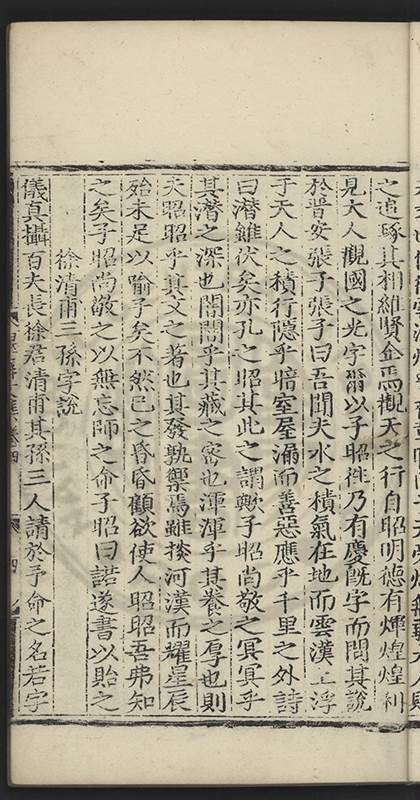 之追琢其相維賢企焉觀天之行自昭明德有煇煌煌利
見大人觀國之光字爾以子昭徃乃有慶旣字而問其說
於晉安張子張子曰吾聞夫水之積氣在地而雲漢上浮
于天人之積行隱乎暗室屋漏而善惡應乎千里之外詩
曰潛雖伏矣亦孔之昭其此之謂歟子昭尚敬之冥冥乎
其潛之深也闇闇乎其藏之密也渾渾乎其養之厚也則
夫昭昭乎其文之著也其發孰禦焉雖掞河漢而耀星辰
殆未足以喻子矣不然已之昏昏顧欲使人昭昭吾弗知
之矣子昭尚敬之以無忘師之命子昭曰諾遂書以貽之
徐清甫三孫字說
儀真攝百夫長徐君清甫其孫三人請於予命之名若字